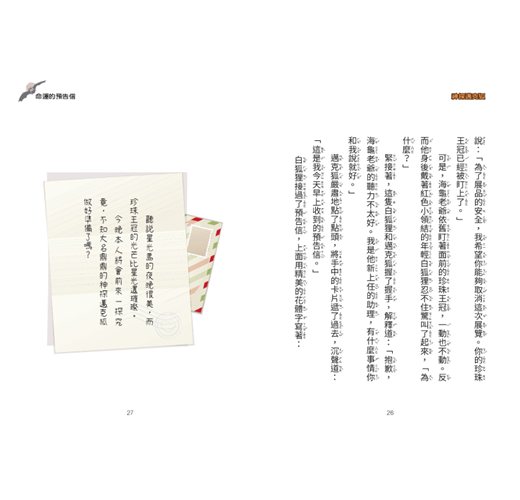 神探邁克狐
說：「為了展品的安全，我希望你能夠取消這次展覽。你的珍珠
王冠已經被盯上了。」
可是，海龜老爺依舊盯著面前的珍珠王冠，一動也不動。反
而他身後戴著紅色小領結的年輕白狐狸忍不住驚叫了起來，「為
什麼？」
緊接著，這隻白狐狸和邁克狐握了握手，解釋道：「抱歉，
海龜老爺的聽力不太好。我是他新上任的助理，有什麼事情你
和我說就好。」
邁克狐嚴肅地點了點頭，將手中的卡片遞了過去，沉聲道：
「這是我今天早上收到的預告信。」
白狐狸接過了預告信，上面用精美的花體字寫著：
26
命運的預告信
聽說星光島的夜晚很美，而
珍珠王冠的光芒比星光還璀璨，
今晚本人將會前來一探究
竟，不知大名鼎鼎的神探邁克狐
做好準備了嗎？
27